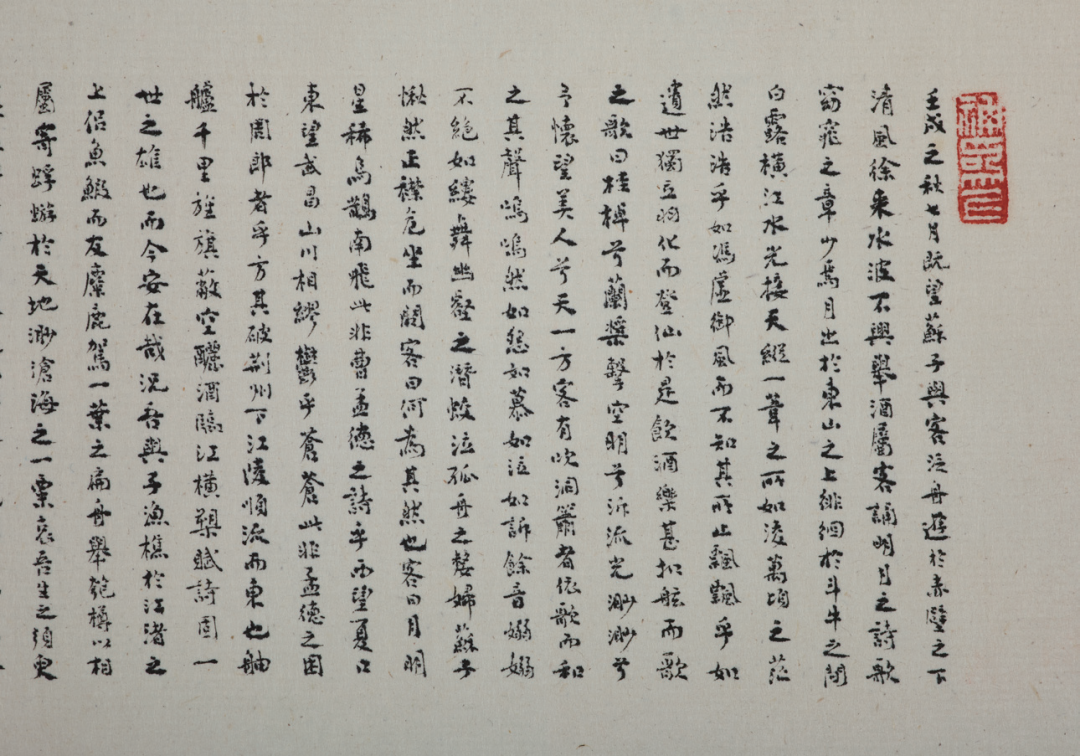 壬戌之秋七月既望蘇子與客泛舟遊於赤壁之下
清風徐來水波不興舉酒屬客誦明月之詩歌
窈窕之章少焉月出於東山之上徘徊於斗牛之間
白露橫江水光接天縱一葦之所如淩萬頃之茫
然浩浩乎如馮虛御風而不知其所止飄飄乎如
遺世獨立羽化而登仙於是飲酒樂甚扣舷而歌
之歌曰桂棹兮蘭槳擊空明兮泝流光渺渺兮
予懷望美人兮天一方客有吹洞簫者依歌而和
之其聲嗚嗚然如怨如慕如泣如訴餘音嫋嫋
不絕如縷舞幽壑之潛蛟泣孤舟之嫠婦蘇子
愀然正襟危坐而問客曰何為其然也客曰月明
星稀烏鵲南飛此非曹孟德之詩乎西望夏口
東望武昌山川相繆鬱乎蒼蒼此非孟德之困
於周郎者乎方其破荊州下江陵順流而東也舳
艫千里旌旗蔽空釃酒臨江橫槊賦詩固一
世之雄也而今安在哉況吾與子漁樵於江渚之
上侶魚鰕而友麋鹿駕一葉之扁舟舉匏樽以相
屬寄蜉蝣於天地渺滄海之一粟哀吾生之須臾